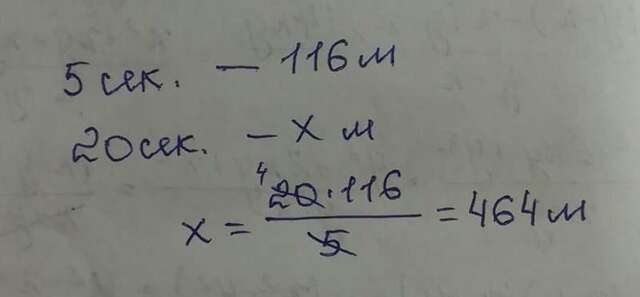 5 сек. — 116 м
20 сек. — x м
x = 4 20 · 116 / 5 = 464 м